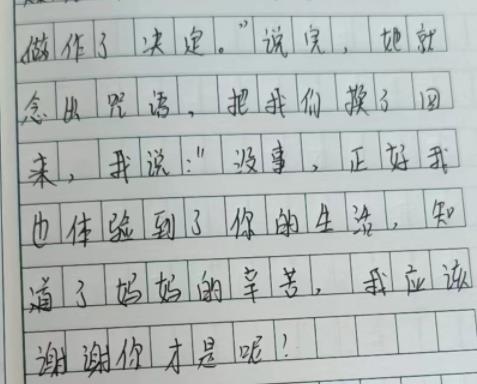 做作了决定。”说完，她就
念出咒语，把我们换了回
来，我说：“没事，正好我
也体验到了你的生活，知
道了妈妈的辛苦，我应该
谢谢你才是呢！